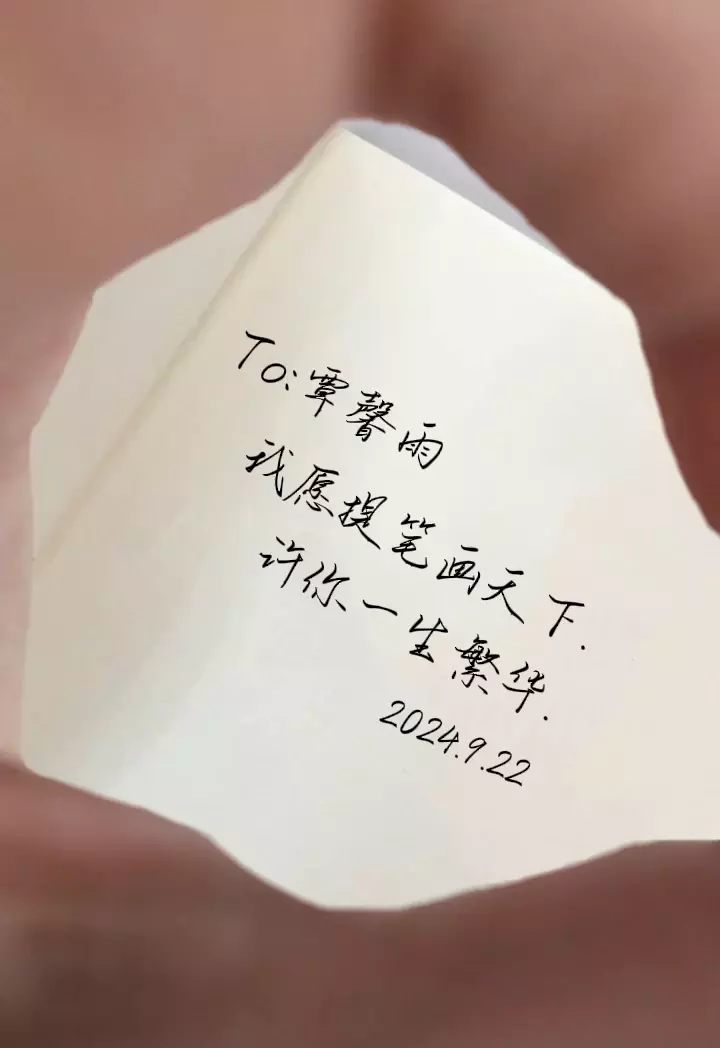 To:覃馨雨
我愿提笔画天下.
许你一生繁华.
2024.9.22